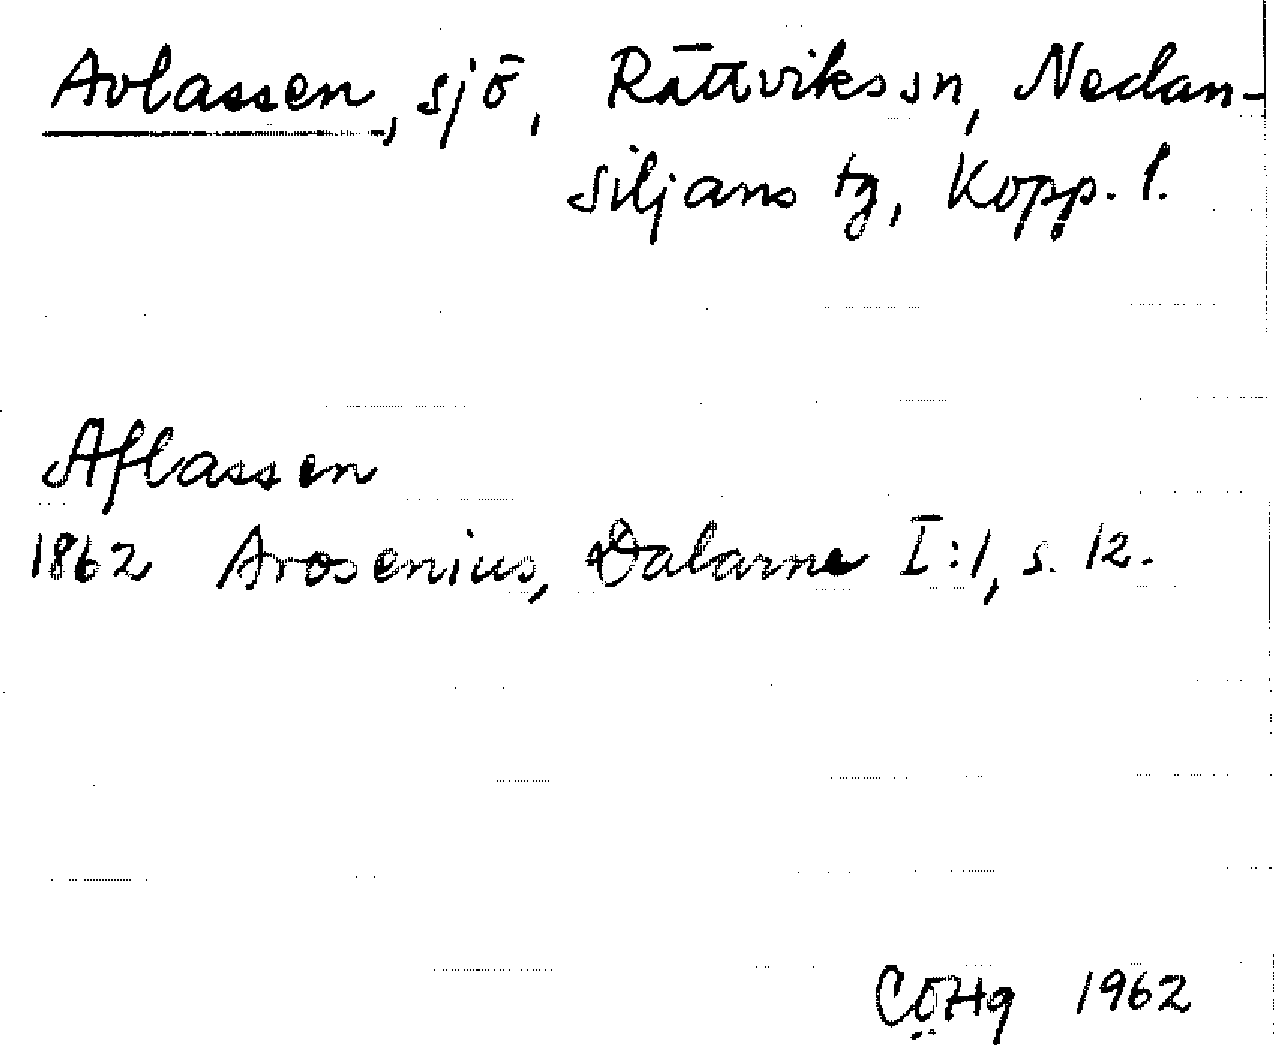 Avlassen, sjö, Rättviks sn, Nedan-
siljans tg, Kopp. l.
Aflassen
1862 Arosenius, Dalarne I:1, s. 12.
CÖHg 1962